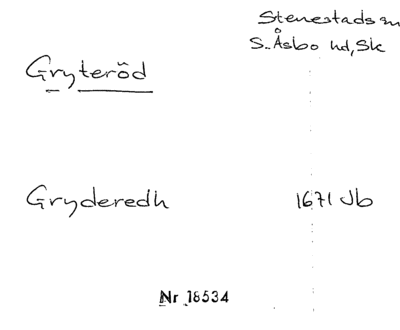 Stenestads sn
Gryteröd S. Åsbo hd, Sk
Gryderedh 1671 Jb
Nr 18534